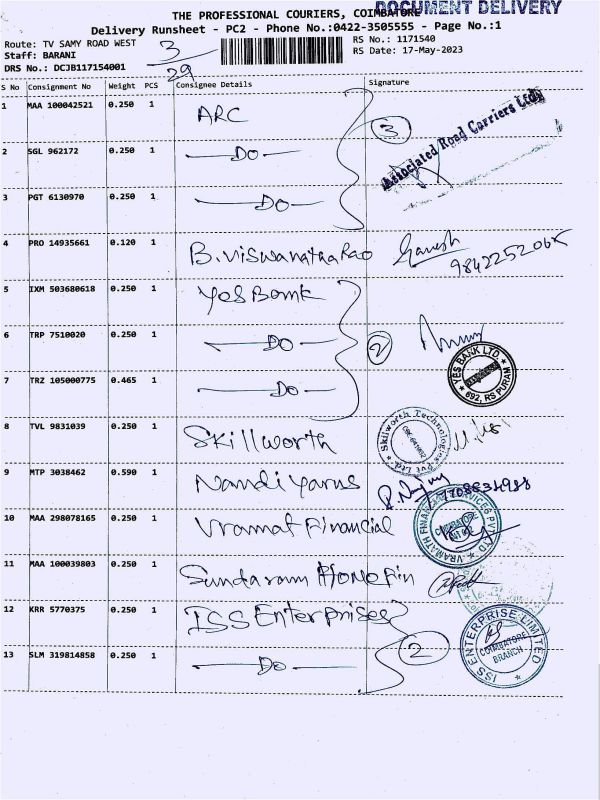 DOCUMENT DELIVERY
THE PROFESSIONAL COURIERS, COIMBATORE
Delivery Runsheet - PC2 - Phone No.:0422-3505555 - Page No.:1
Route: TV SAMY ROAD WEST
Staff: BARANI
DRS No.: DCJB117154001
3
29
RS No.: 1171540
RS Date: 17-May-2023
S No Consignment No Weight PCS Consignee Details Signature
1 MAA 100042521 0.250 1 ARC
3
Associated Road Carriers Ltd.
2 SGL 962172 0.250 1 DO
3 PGT 6130970 0.250 1 DO
4 PRO 14935661 0.120 1 B. Viswanathaa Rao Ganesh
5 IXM 503680618 0.250 1 Yes Bank
6 TRP 7510020 0.250 1 DO
2
7 TRZ 105000775 0.465 1 DO
YES BANK LTD. * 692, RS PURAM *
8 TVL 9831039 0.250 1 Skillworth
Skilworth Technologies Pvt Ltd.
9 MTP 3038462 0.590 1 Nandi Yarns
10 MAA 298078165 0.250 1 Vramat Financial
VRAMATH FINANCIAL SERVICES PVT LTD
COIMBATORE
11 MAA 100039803 0.250 1 Sundaram Home Fin
12 KRR 5770375 0.250 1 ISS Enterprises
13 SLM 319814858 0.250 1 DO
2
ISS ENTERPRISE LIMITED
COIMBATORE
BRANCH